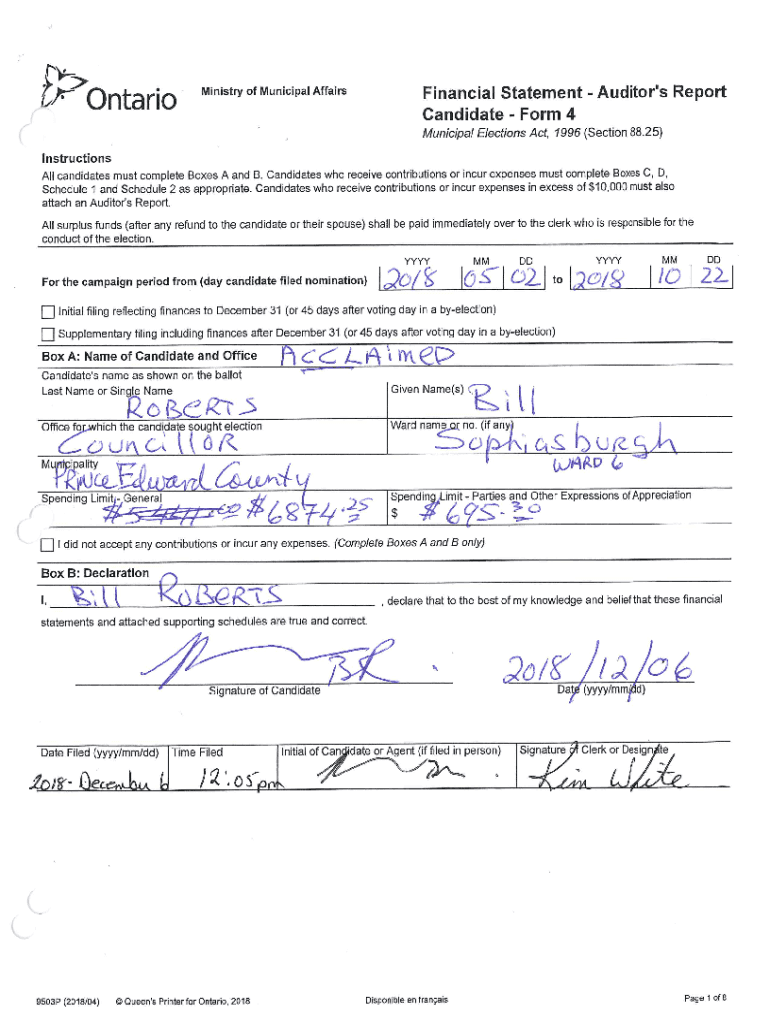 Ontario
Ministry of Municipal Affairs
Financial Statement - Auditor's Report
Candidate - Form 4
Municipal Elections Act, 1996 (Section 88.25)
Instructions
All candidates must complete Boxes A and B. Candidates who receive contributions or incur expenses must complete Boxes C, D,
Schedule 1 and Schedule 2 as appropriate. Candidates who receive contributions or incur expenses in excess of $10,000 must also
attach an Auditor's Report.
All surplus funds (after any refund to the candidate or their spouse) shall be paid immediately over to the clerk who is responsible for the
conduct of the election.
YYYY MM DD YYYY MM DD
For the campaign period from (day candidate filed nomination) 2018 05 02 to 2018 10 22
Initial filing reflecting finances to December 31 (or 45 days after voting day in a by-election)
Supplementary filing including finances after December 31 (or 45 days after voting day in a by-election)
Box A: Name of Candidate and Office ACCLAimeD
Candidate's name as shown on the ballot
Last Name or Single Name Given Name(s)
ROBERTS Bill
Office for which the candidate sought election Ward name or no. (if any)
Councillor Sophiasburgh
Municipality WARD 6
PRince Edward County
Spending Limit - General Spending Limit - Parties and Other Expressions of Appreciation
$6874.25 $ $695.30
I did not accept any contributions or incur any expenses. (Complete Boxes A and B only)
Box B: Declaration
I, Bill ROBERTS , declare that to the best of my knowledge and belief that these financial
statements and attached supporting schedules are true and correct.
BR 2018/12/06
Signature of Candidate Date (yyyy/mm/dd)
Date Filed (yyyy/mm/dd) Time Filed Initial of Candidate or Agent (if filed in person) Signature of Clerk or Designate
2018-December 6 12:05pm Kim White
9503P (2018/04) © Queen's Printer for Ontario, 2018 Disponible en français Page 1 of 8